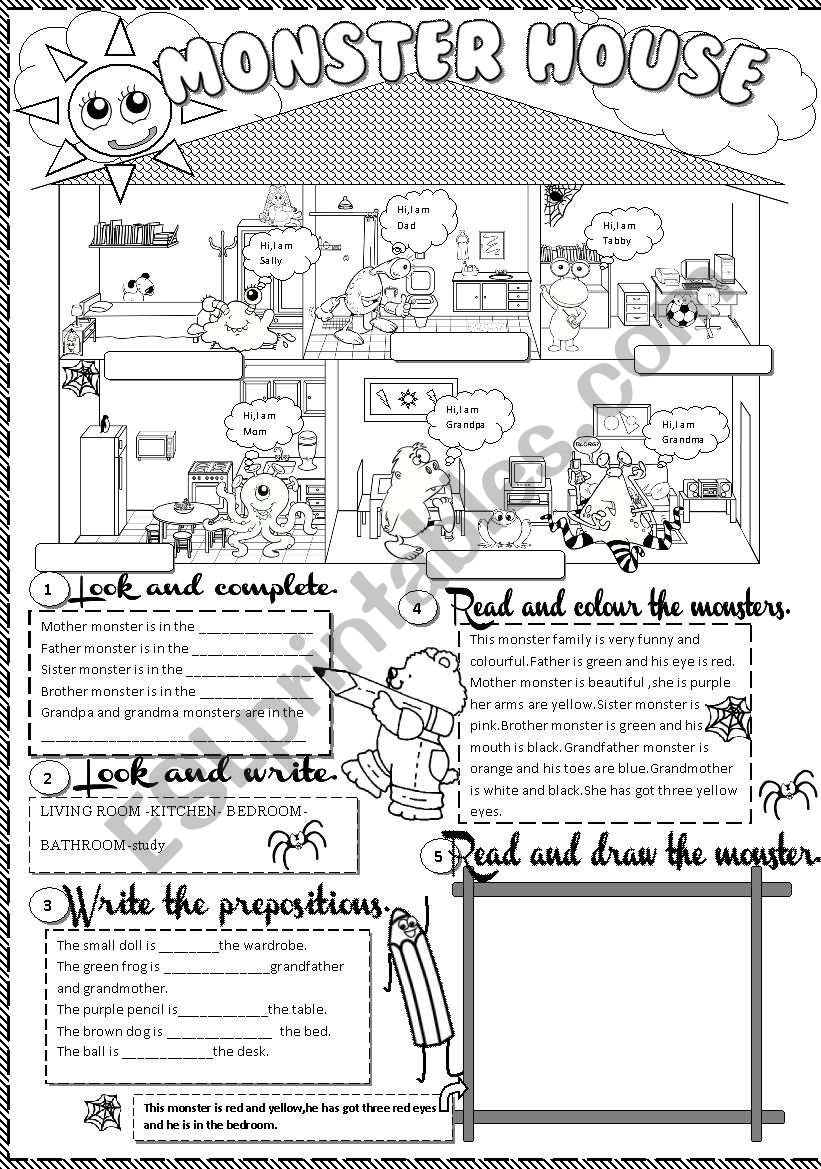 MONSTER HOUSE
Hi,I am
Sally
Hi,I am
Dad
Hi,I am
Tabby
Hi,I am
Mom
Hi,I am
Grandpa
BLORG?
Hi,I am
Grandma
1 Look and complete.
Mother monster is in the _______________
Father monster is in the ________________
Sister monster is in the _________________
Brother monster is in the _______________
Grandpa and grandma monsters are in the
___________________________________
2 Look and write.
LIVING ROOM -KITCHEN- BEDROOM-
BATHROOM-study
3 Write the prepositions.
The small doll is ________the wardrobe.
The green frog is ______________grandfather
and grandmother.
The purple pencil is____________the table.
The brown dog is ______________ the bed.
The ball is ____________the desk.
This monster is red and yellow,he has got three red eyes
and he is in the bedroom.
4 Read and colour the monsters.
This monster family is very funny and
colourful.Father is green and his eye is red.
Mother monster is beautiful ,she is purple
her arms are yellow.Sister monster is
pink.Brother monster is green and his
mouth is black. Grandfather monster is
orange and his toes are blue.Grandmother
is white and black.She has got three yellow
eyes.
5 Read and draw the monster.
ESLprintables.com